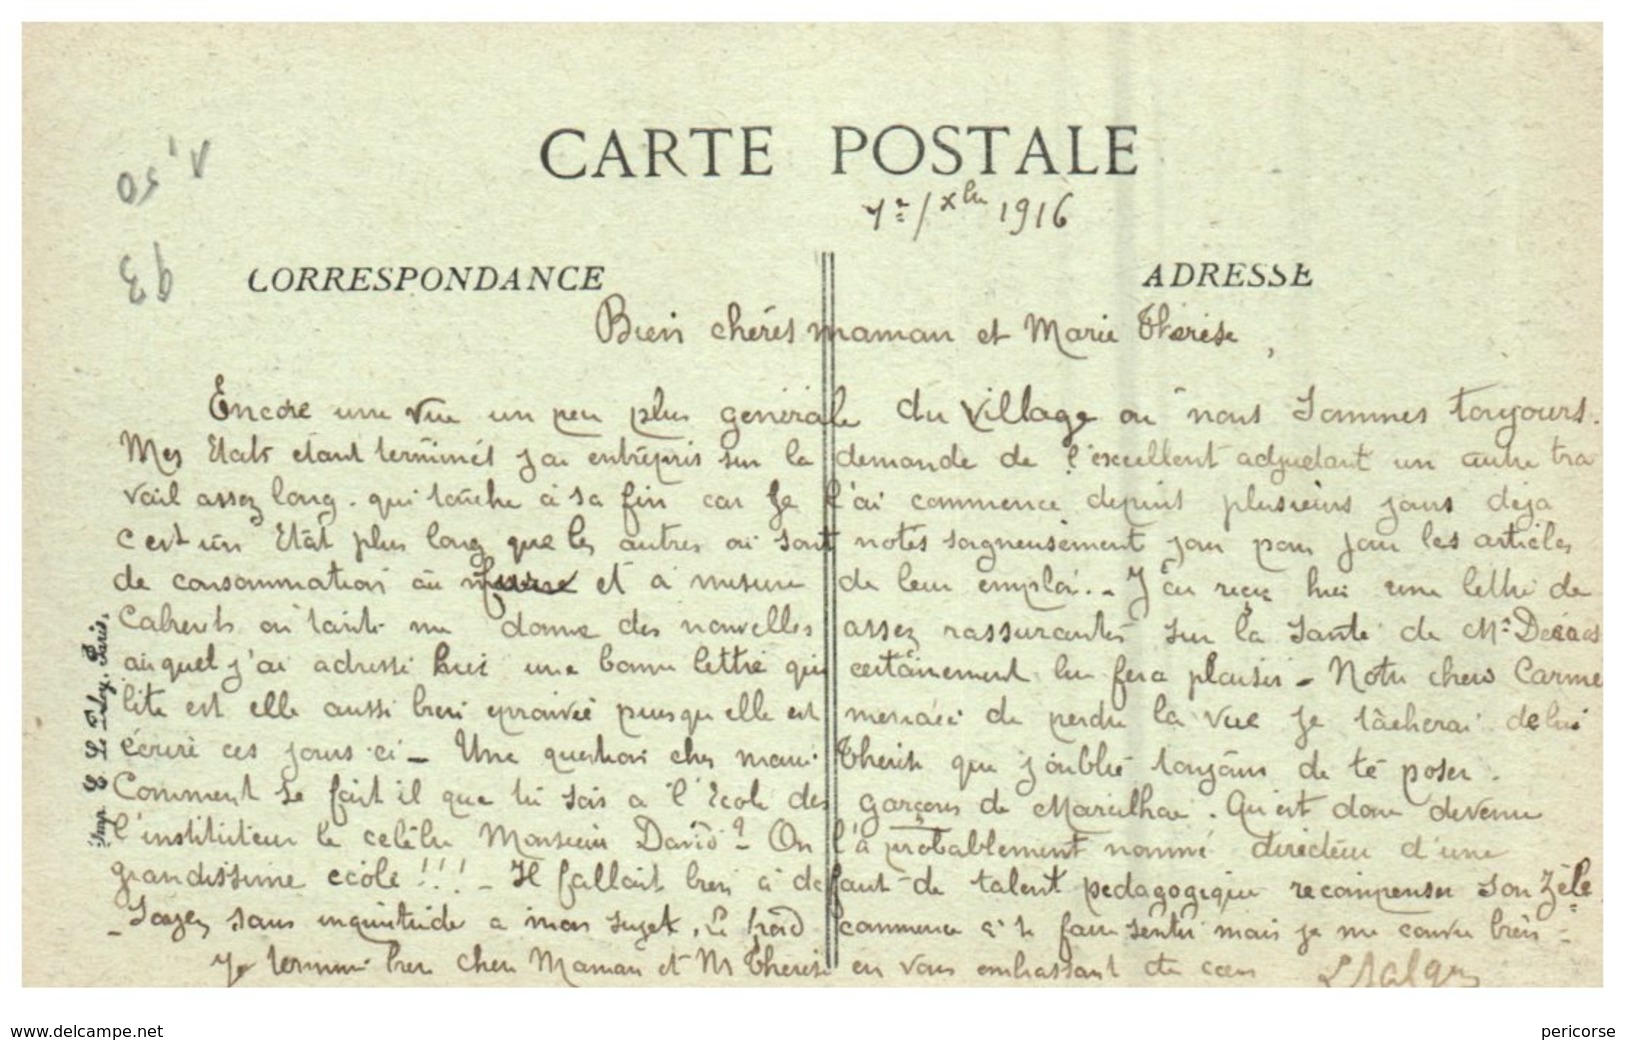 CARTE POSTALE
1er/Xbre 1916
V.50
93
CORRESPONDANCE
ADRESSE
Bien chères maman et Marie Thérèse,
Encore une vue un peu plus générale du Village où nous sommes toujours.
Mes Etats étant terminés j'ai entrepris sur la demande de l'excellent adjudant un autre tra
vail assez long. qui touche à sa fin car Je l'ai commencé depuis plusieurs jours déjà
C'est un Etat plus long que les autres où sont notés soigneusement jour pour jour les articles
de consommation au et à mesure de leur emploi.. - J'ai reçu hui une lettre de
où tante me donne des nouvelles assez rassurantes sur la Santé de Mr
auquel j'ai adressé hui une bonne lettre qui certainement lui fera plaisir - Notre chère Carme
lite est elle aussi bien éprouvée puisqu'elle est menacée de perdre la vue Je tâcherai de lui
écrire ces jours-ci - Une question chère Marie Thérèse que j'oublie toujours de te poser.
Comment se fait il que tu sois à l'école des garçons de Marcilhac. Qu'est donc devenu
l'instituteur le célèbre Monsieur David? - On l'a probablement nommé directeur d'une
grandissime école!!! - Il fallait bien à défaut de talent pédagogique récompenser son Zèle
- Soyez sans inquiétude à mon sujet, Le froid commence à se faire sentir mais je me couvre bien -
Je termine bien chère Maman et M Thérèse en vous embrassant de cœur
Imp. E. Le Deley, Paris.
www.delcampe.net
pericorse